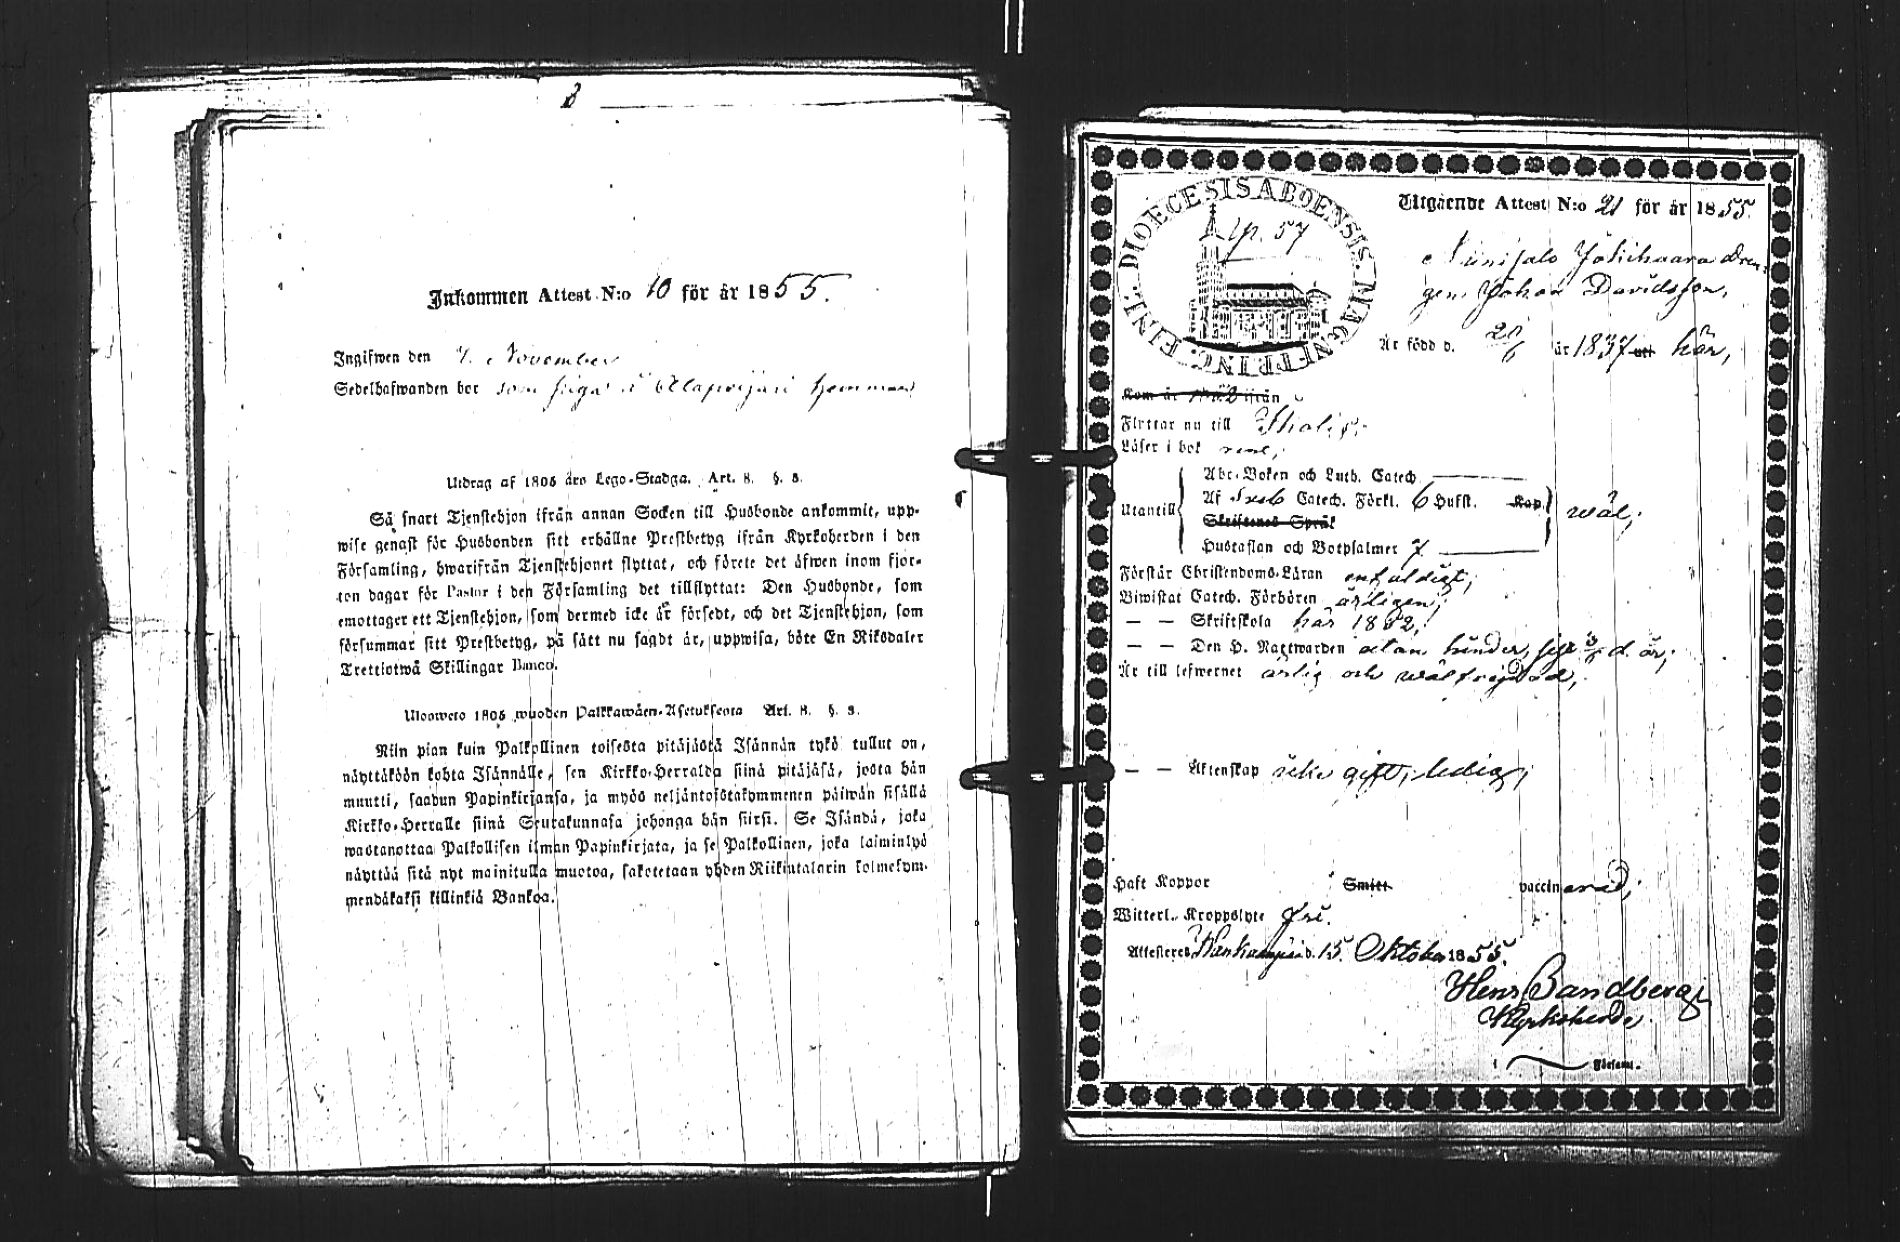 Inkommen Attest N:o 10 för år 1855.
Ingifwen den 7. November
Sedelhafwanden bor som piga i Alapoijari hemman
Utdrag af 1805 års Lego-Stadga. Art. 8. §. 8.
Så snart Tjenstehjon ifrån annan Socken till Husbonde ankommit, upp-
wise genast för Husbonden sitt erhållne Prestbetyg ifrån Kyrkoherden i den
Församling, hwarifrån Tjenstehjonet flyttat, och förete det äfwen inom fjor-
ton dagar för Pastor i den Församling det tillflyttat: Den Husbonde, som
emottager ett Tjenstehjon, som dermed icke är försedt, och det Tjenstehjon, som
försummar sitt Prestbetyg, på sätt nu sagdt är, uppwisa, böte En Riksdaler
Trettiotwå Skillingar Banco.
Ulosweto 1805 wuoden Palkkawäen-Asetuksesta Art. 8. §. 8.
Niin pian kuin Palkollinen toisesta pitäjästä Isännän tykö tullut on,
näyttäköön kohta Isännälle, sen Kirkko-Herralda siinä pitäjäsä, josta hän
muutti, saadun Papinkirjansa, ja myös neljäntoistakymmenen päiwän sisällä
Kirkko-Herralle siinä Seurakunnasa johonga hän siirsi. Se Isändä, joka
wastanottaa Palkollisen ilman Papinkirjata, ja se Palkollinen, joka laiminlyö
näyttää sitä nyt mainitulla muotoa, sakotetaan yhden Riikintalarin kolmekym-
mendäkaksi killinkiä Bankoa.
DIOECESIS ABOENSIS. MAGNI PRINC. FINL.
Utgående Attest N:o 21 för år 1855.
p. 57
Niinisalo Jokihaara Dren-
gen Johan Davidsson,
Är född d. 21/6 år 1837 här,
Kom år ifrån
Flyttar nu till
Läser i bok rent,
Abc-Boken och Luth. Catech
Utantill Af Sveb Catech. Förkl. 6 Hufst. Kap. wäl;
Skriftenes Språk
Hustaflan och Botpsalmer 7
Förstår Christendoms-Läran enfaldigt;
Biwistat Catech. Förhören årligen;
— — Skriftskola här 1852,
— — Den H. Nattwarden utan hinder, d. år;
Är till lefwernet ärlig och wälfrejdad,
— — Äktenskap icke gift, ledig;
Haft Koppor Smitt vaccinerad;
Witterl. Kroppslyte fri.
Attesteres Kankaanpää d. 15. Oktober 1855.
Henr Sandberg
Kyrkoherde
i Församl.